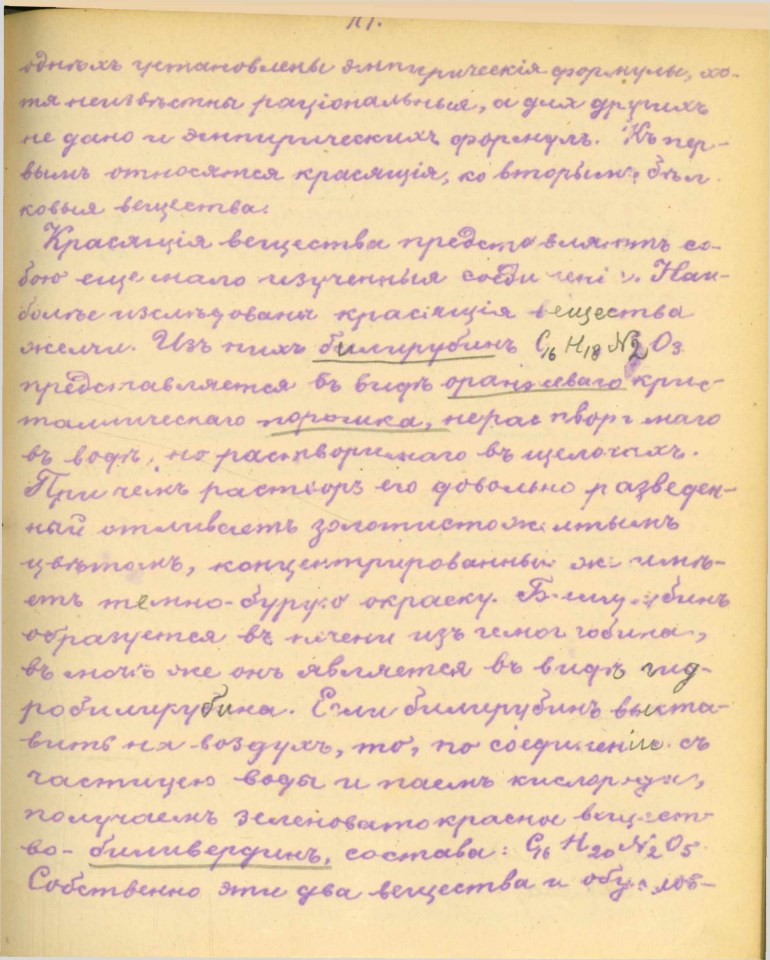 однѣхъ установлены эмпирическія формулы, хо-
тя неизвѣстны раціональныя, а для другихъ
не дано и эмпирическихъ формулъ. Къ пер-
вымъ относятся красящія, ко вторымъ бѣл
ковыя вещества.
Красящія вещества представляютъ со-
бою еще мало изученныя соединенія. Наи-
болѣе изслѣдованы красящія вещества
желчи. Изъ нихъ билирубинъ C16 H18 N2 O3
представляется въ видѣ оранжеваго крис-
таллическаго порошка, нерастворимаго
въ водѣ, но растворимаго въ щелочахъ.
При чемъ растворъ его довольно разведен-
ный отливаетъ золотистожелтымъ
цвѣтомъ, концентрированный же имѣ-
етъ темно-бурую окраску. Билирубинъ
образуется въ печени изъ гемоглобина,
въ мочѣ же онъ является въ видѣ гид-
робилирубина. Если билирубинъ выста-
вить на воздухъ, то, по соединеніи съ
частицею воды и паемъ кислорода,
получаемъ зеленоватокрасное вещест-
во - биливердинъ, состава: C16 H20 N2 O5.
Собственно эти два вещества и обуслов-